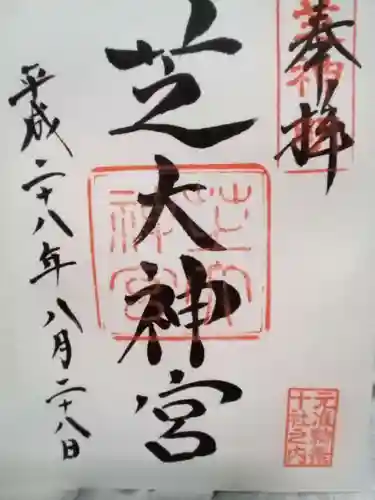 奉拝
芝大神宮
平成二十八年八月二十八日
芝大神宮
元准勅祭
十社之内